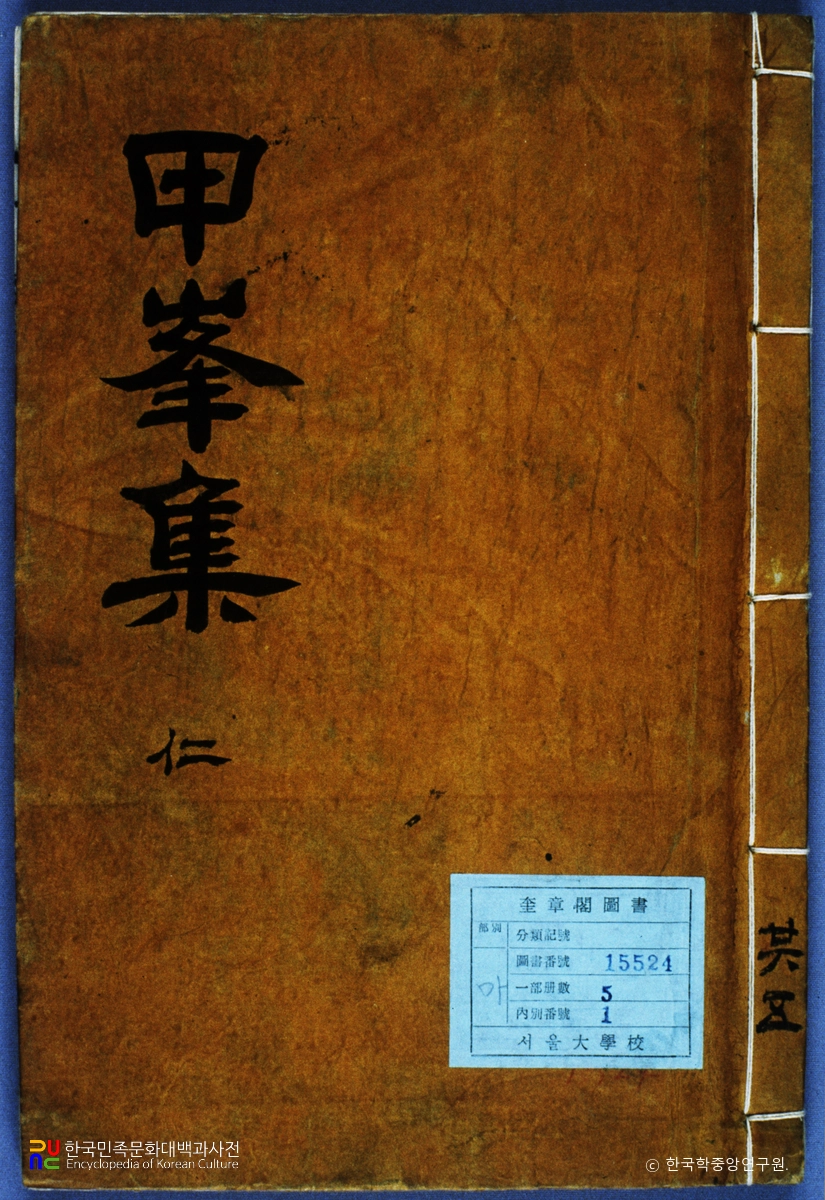 甲峯集
仁
共五
奎章閣圖書
部別
分類記號
圖書番號 15524
마
一部册數 5
內別番號 1
서울大學校
한국민족문화대백과사전
Encyclopedia of Korean Culture
© 한국학중앙연구원.